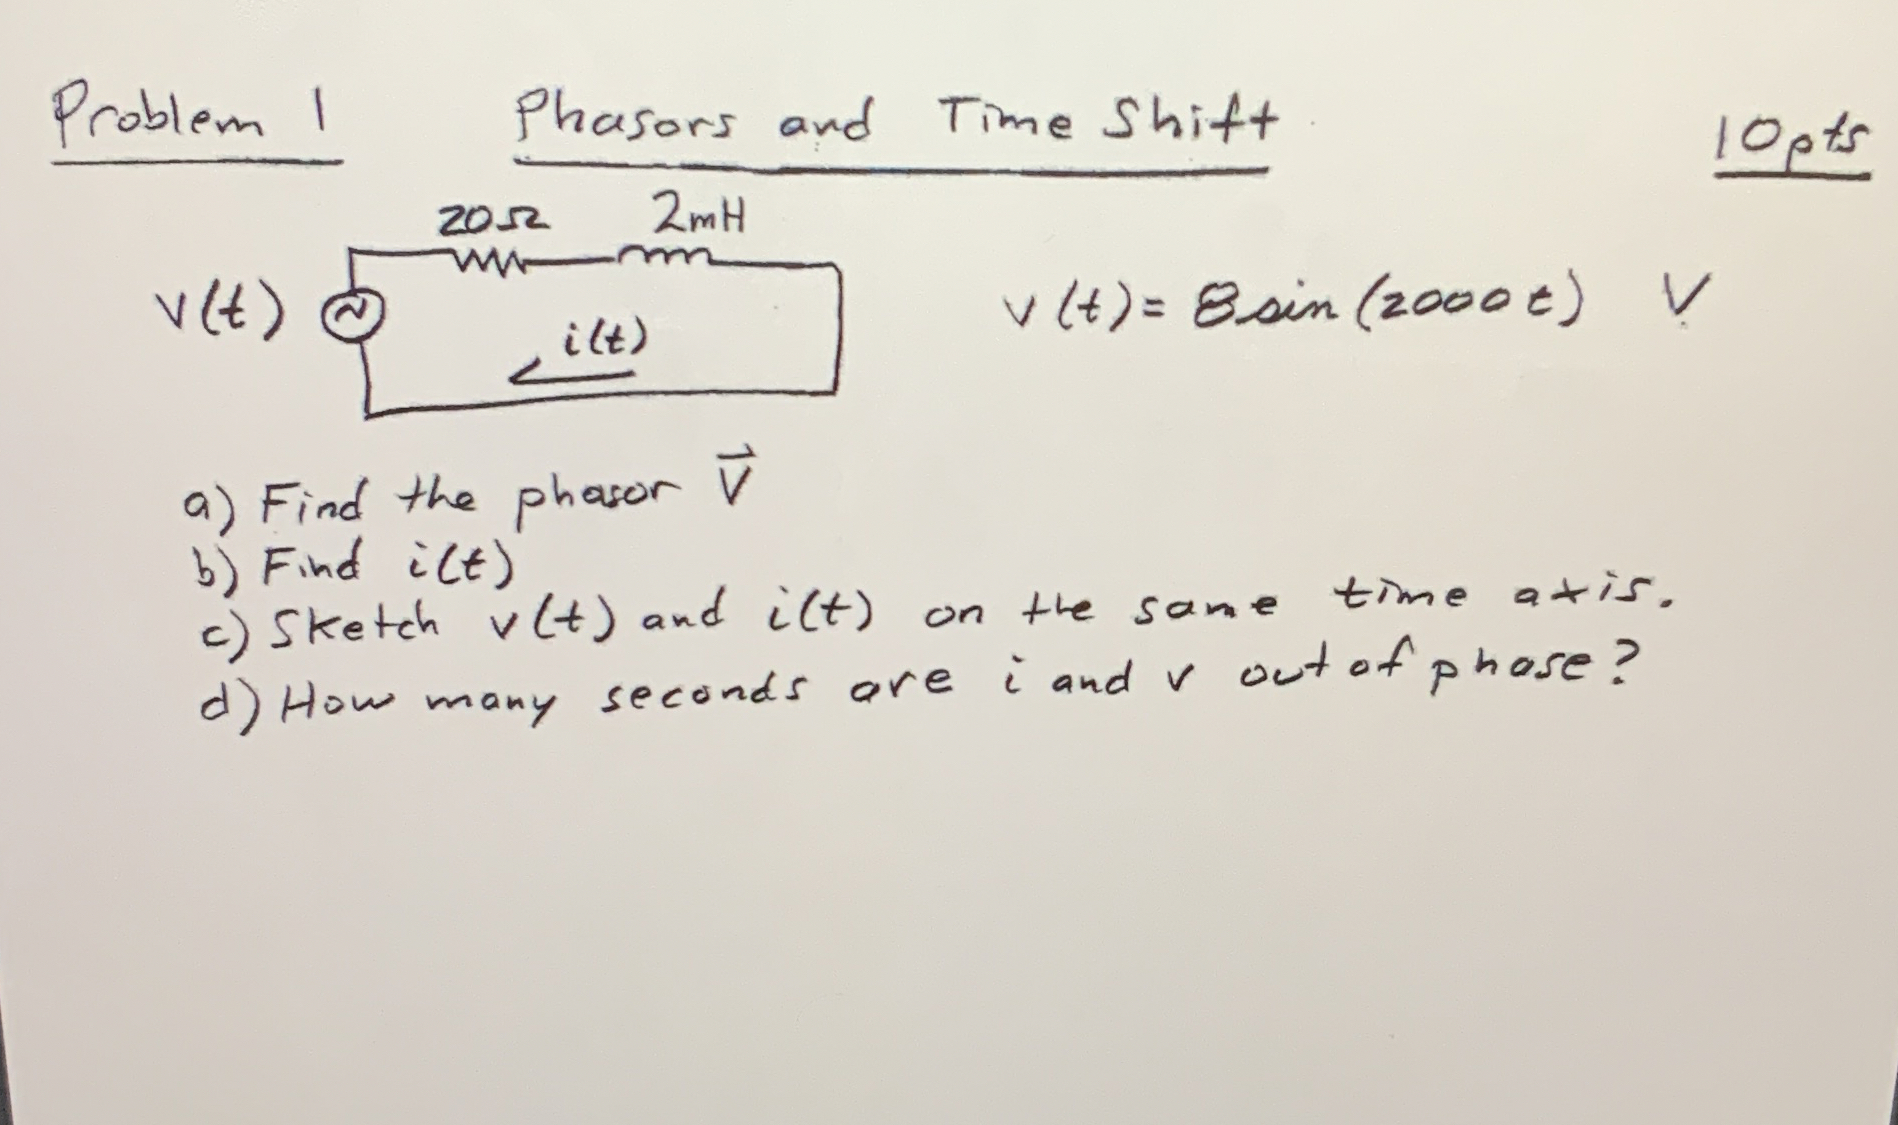 Problem 1 Phasors and Time Shift 10pts
20Ω 2mH
v(t) i(t) v(t) = 8 sin(2000t) V
a) Find the phasor V⃗
b) Find i(t)
c) Sketch v(t) and i(t) on the same time axis.
d) How many seconds are i and v out of phase?